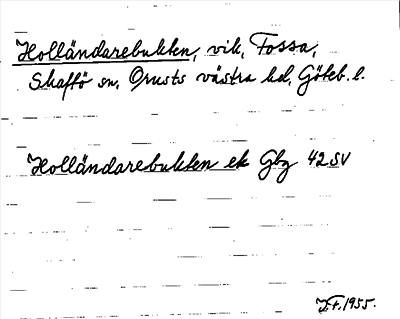 Holländarebukten, vik, Tossa,
Skaftö sn, Orusts västra hd, Göteb. l.
Holländarebukten ek Gbg 42 SV
J.F. 1955.